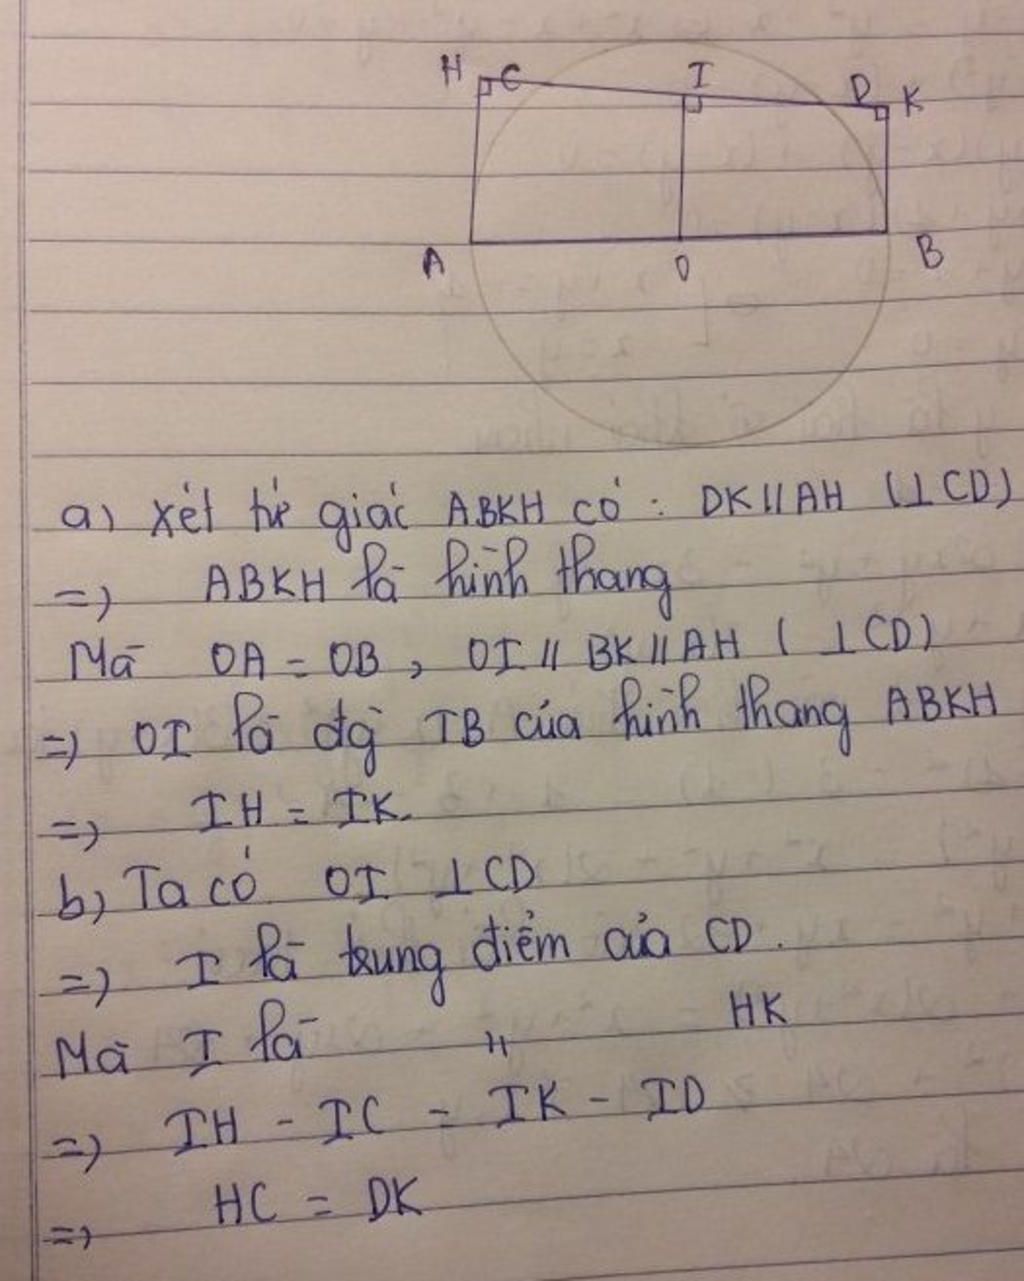 H C I D K
A O B
a) Xét tứ giác ABKH có : DK // AH (⊥CD)
=) ABKH là hình thang
Mà OA = OB , OI // BK // AH ( ⊥CD)
=) OI là đg TB của hình thang ABKH
=) IH = IK.
b) Ta có OI ⊥CD
=) I là trung điểm của CD.
Mà I là " HK
=) IH - IC = IK - ID
=) HC = DK